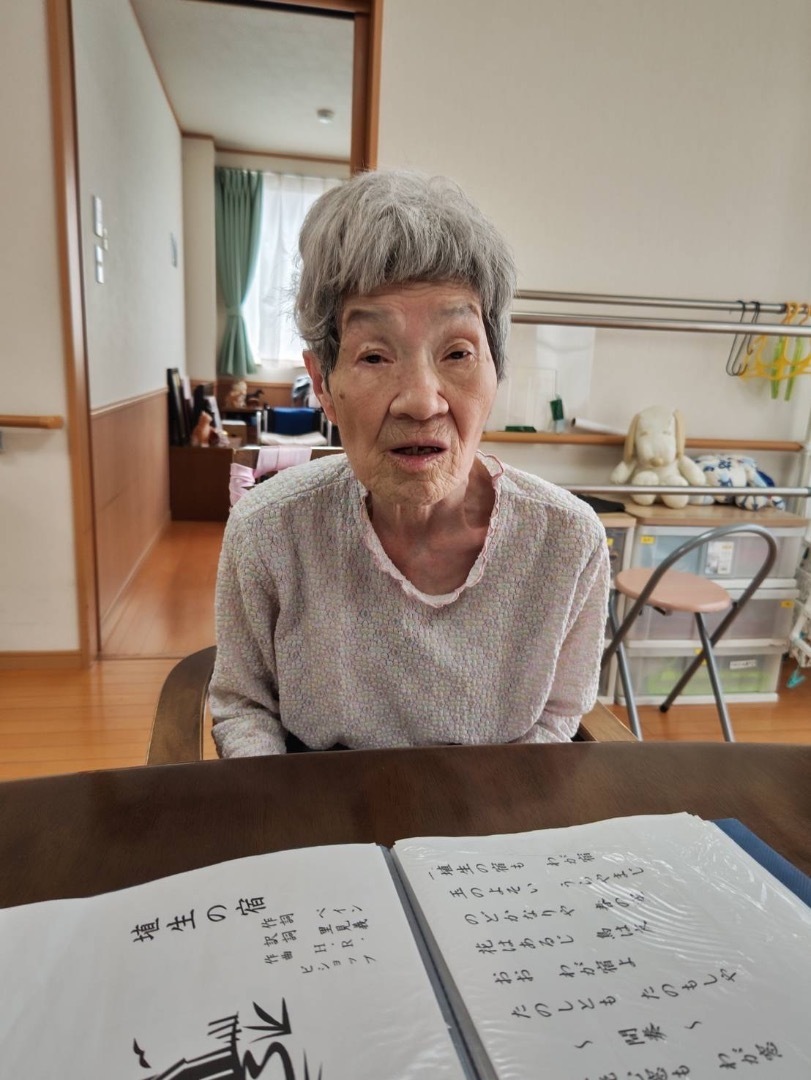 埴生の宿
作詞 ペイン
訳詞 里見義
作曲 H・R・ビショップ
一埴生の宿も わが宿
玉のよそい うらやまじ
のどかなりや 春のそら
花はあるじ 鳥は友
おお わが宿よ
たのしとも たのもしや
～ 間奏 ～
わが窓